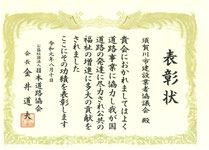 表彰状
須賀川市建設業者協議会 殿
貴会におかれましてはよく
道路事業に協力し我が国
道路の発達に尽力され公共の
福祉の増進に多大の貢献を
されました
ここにその功績を表彰します
令和元年八月十日
公益社団法人 日本道路協会
会長 金井道夫